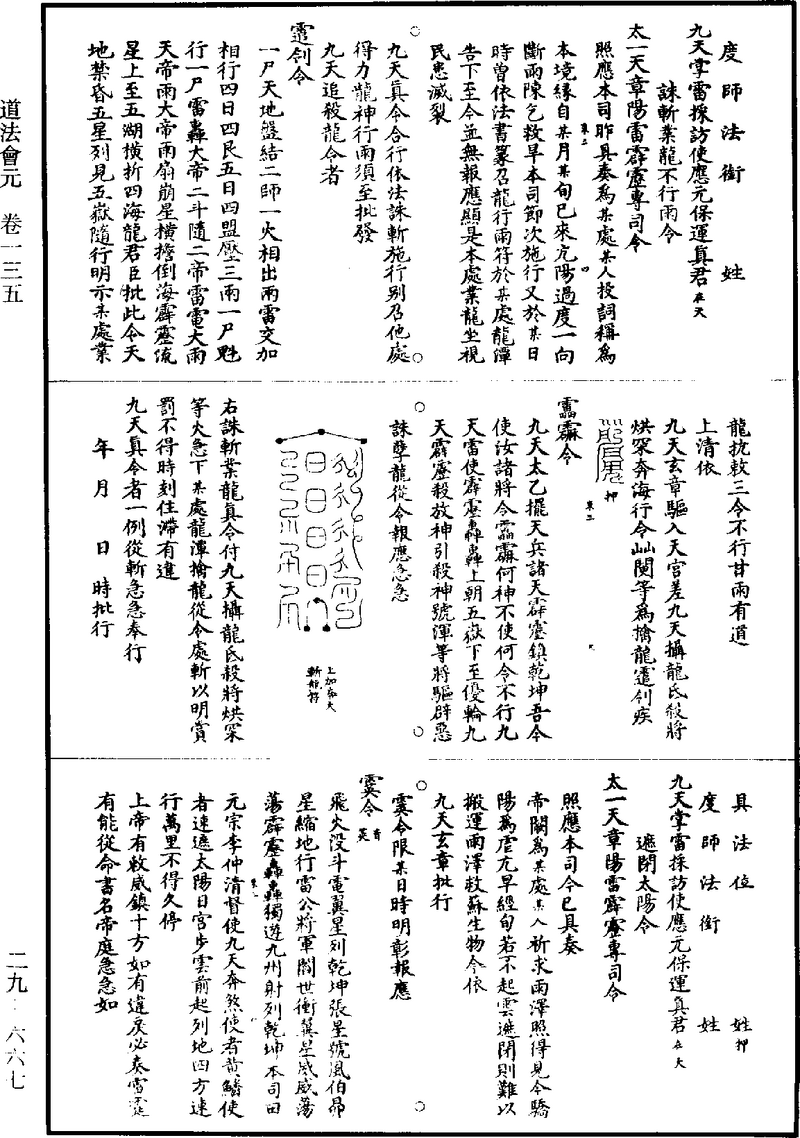 道法會元 卷一三五
二九·六六七
度師法銜 姓
九天掌雷採訪使應元保運真君在天
誅斬業龍不行雨令
太一天章陽雷霹靂專司令
照應本司昨具奏為某處某人投詞稱為
本境緣自某月某旬已來亢陽過度一向
斷雨陳乞救旱本司節次施行又於某日
時曾依法書篆召龍行雨符於某處龍潭
告下至今並無報應顯是本處業龍坐視
民患滅裂
九天真令合行依法誅斬施行別召他處
得力龍神行雨須至批發
九天追殺龍令者
一尸天地盤結二師一火相出兩雷交加
相行四日四艮五日四盟壓三雨一尸魁
行一尸雷轟大帝二斗隨二帝雷電大雨
天帝雨大帝雨扇崩星橫擔倒海霹靂流
星上至五湖橫折四海龍君臣批此令天
地禁昏五星列見五嶽隨行明示某處業
龍抗敕三令不行甘雨有道
上清依
九天玄章驅入天宮差九天攝龍氐殺將
烘罙奔海行令等為擒龍疾
押
九天太乙擺天兵諸天霹靂鎮乾坤吾令
使汝諸將令何神不使何令不行九
天雷使霹靂轟轟上朝五嶽下至優輪九
天霹靂殺放神引殺神號渾等將驅辟惡
誅孽龍從令報應急急
右誅斬業龍真令付九天攝龍氐殺將烘罙
等火急下某處龍潭擒龍從令處斬以明賞
罰不得時刻住滯有違
九天真令者一例從斬急急奉行
年 月 日 時批行
具法位 姓押
度師法銜 姓
九天掌雷採訪使應元保運真君在天
遮閉太陽令
太一天章陽雷霹靂專司令
照應本司今已具奏
帝闕為某處某人祈求雨澤照得見今驕
陽為虐亢旱經旬若不起雲遮閉則難以
搬運雨澤救蘇生物今依
九天玄章批行
霙令限某日時明彰報應
霙令音英
飛火沒斗電翼星列乾坤張星號風伯昴
星縮地行雷公將軍閻世衝箕星威威蕩
蕩霹靂轟轟獨遊九州射列乾坤本司田
元宗李仲清督使九天奔煞使者黄鱔使
者速遮太陽日宮步雲前起列地四方速
行萬里不得久停
上帝有敕威鎮十方如有違戾必奏雷霆
有能從命書名帝庭急急如